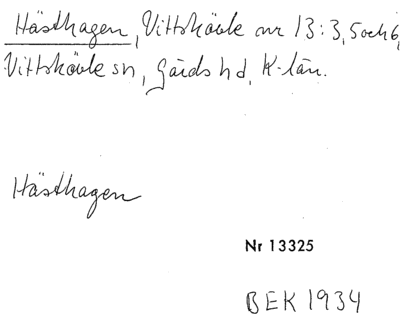 Hästhagen, Vittskövle nr 13:3, 5 och 6,
Vittskövle sn, Gärds hd, K-län.
Hästhagen
Nr 13325
BEK 1934